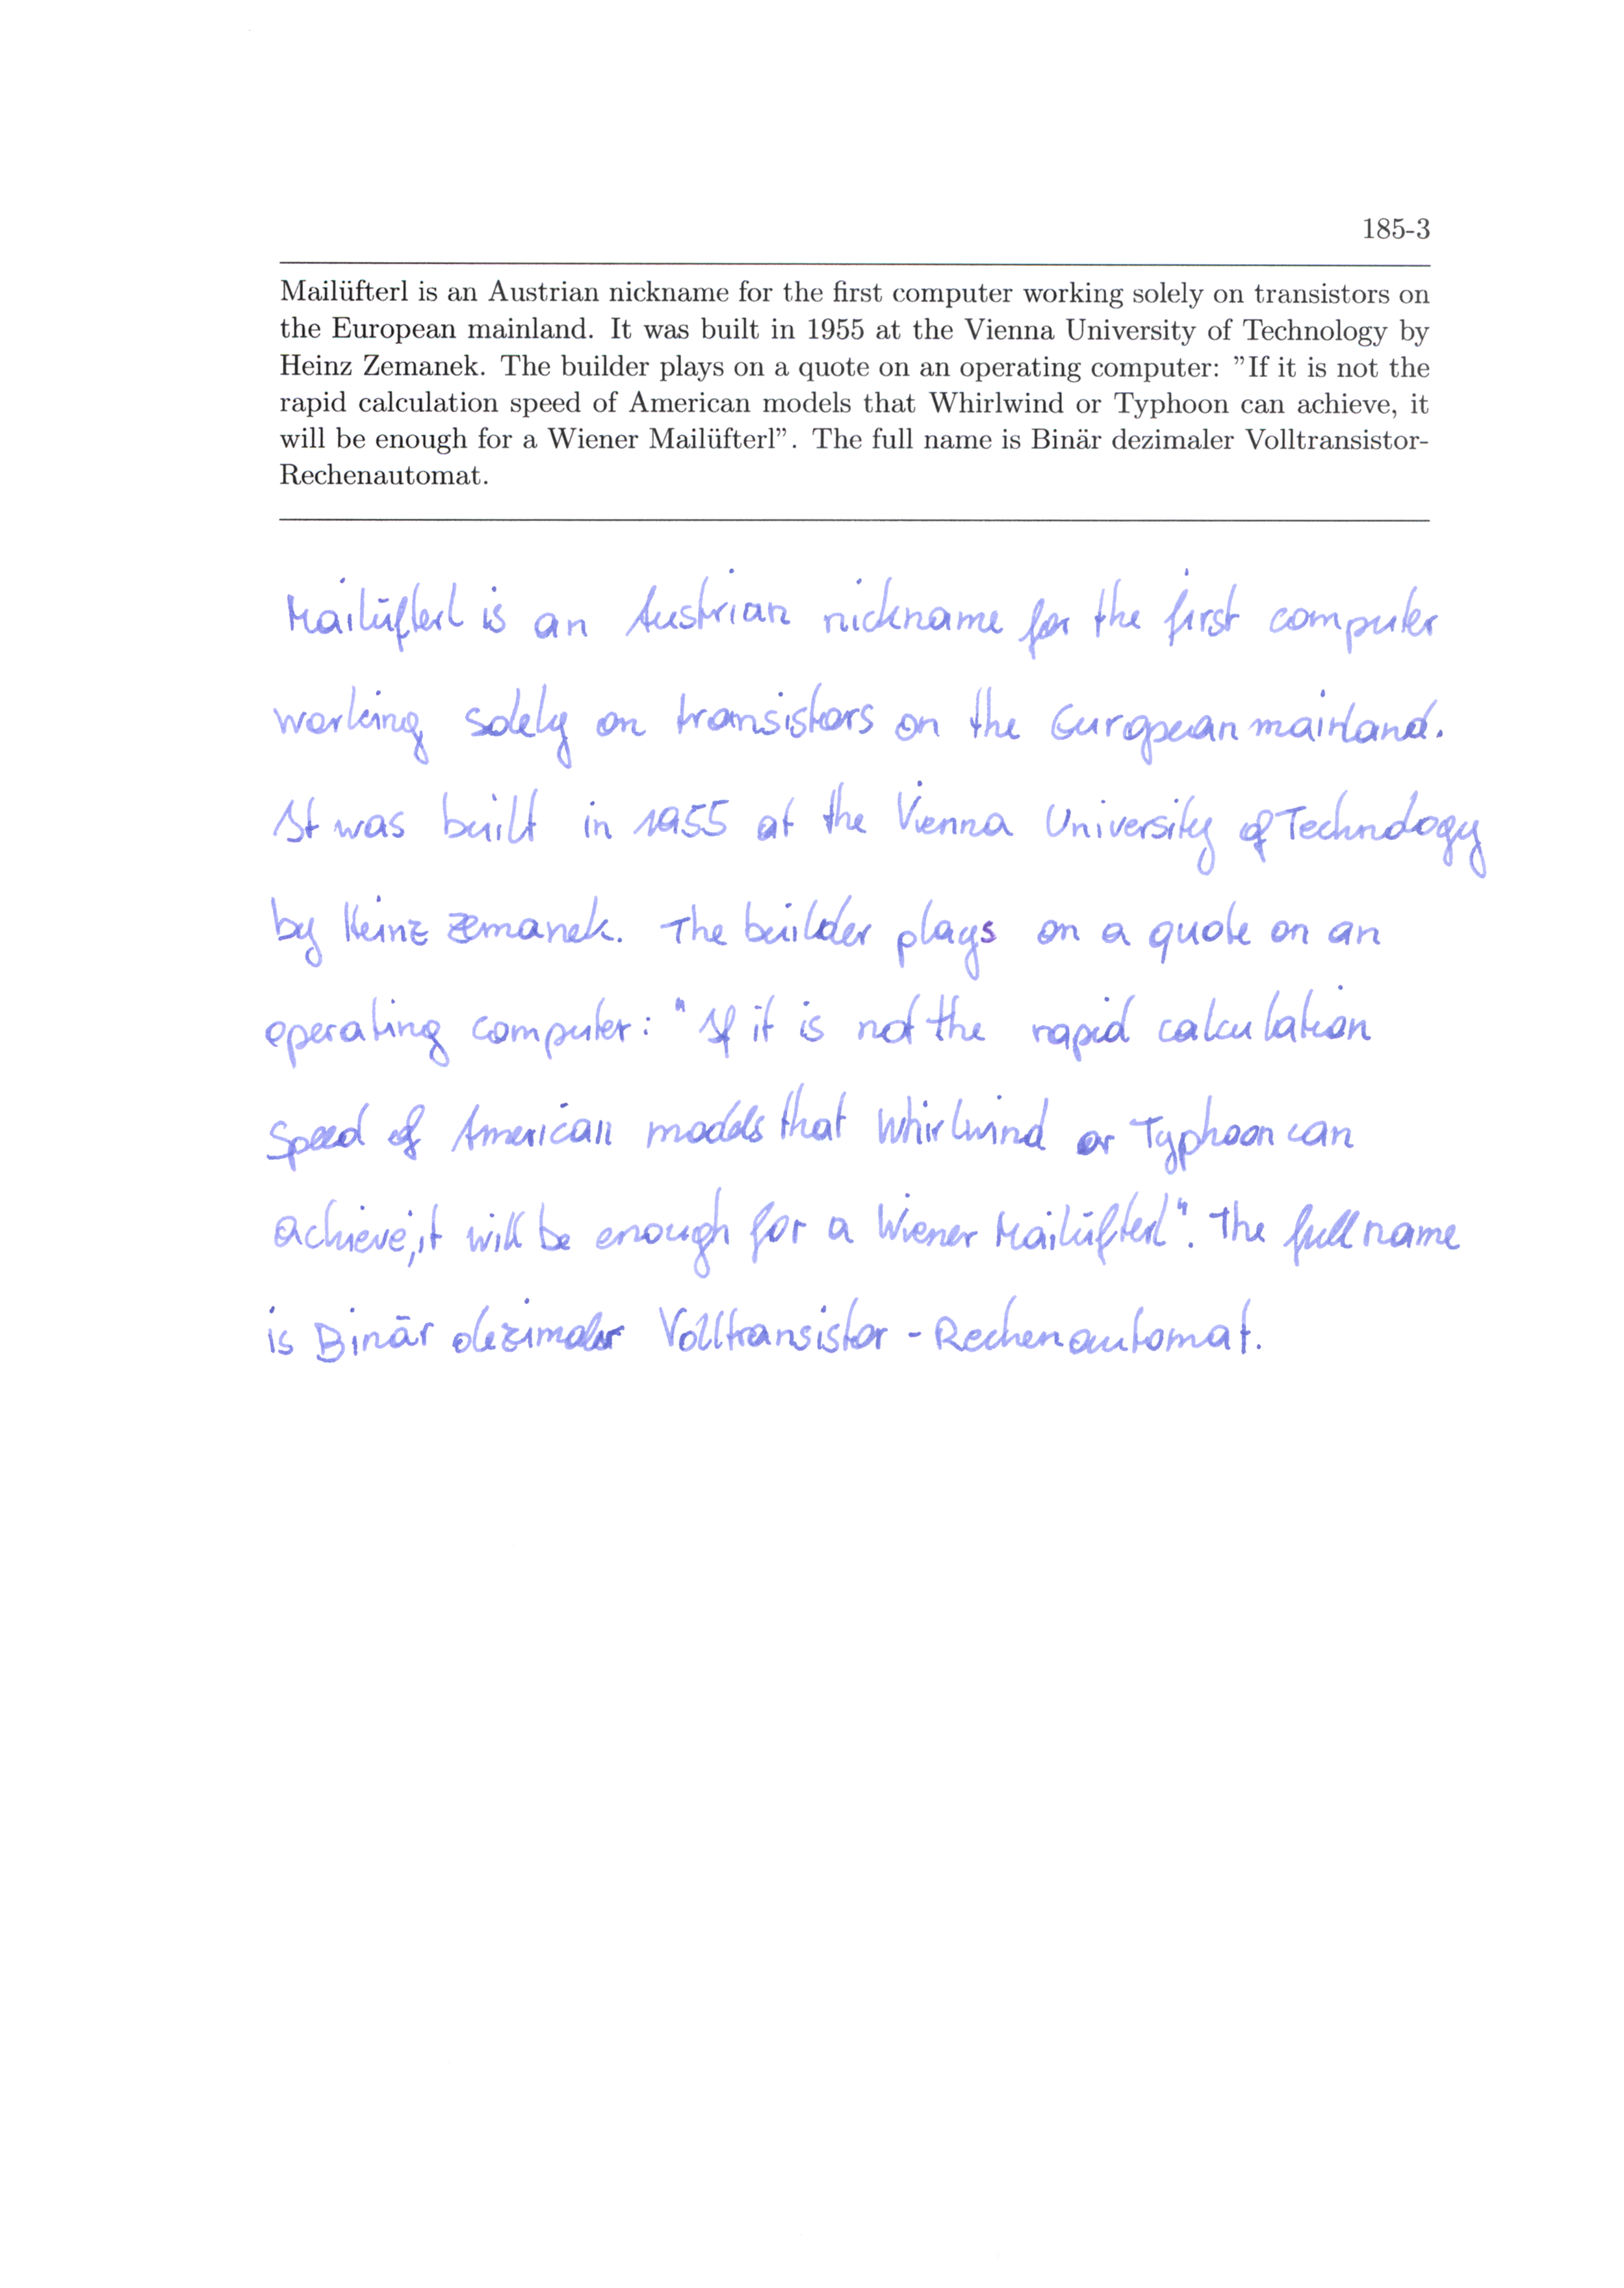 185-3
Mailüfterl is an Austrian nickname for the first computer working solely on transistors on
the European mainland. It was built in 1955 at the Vienna University of Technology by
Heinz Zemanek. The builder plays on a quote on an operating computer: ”If it is not the
rapid calculation speed of American models that Whirlwind or Typhoon can achieve, it
will be enough for a Wiener Mailüfterl”. The full name is Binär dezimaler Volltransistor-
Rechenautomat.
Mailüfterl is an Austrian nickname for the first computer
working solely on transistors on the European mainland.
It was built in 1955 at the Vienna University of Technology
by Heinz Zemanek. The builder plays on a quote on an
operating computer: "If it is not the rapid calculation
speed of American models that Whirlwind or Typhoon can
achieve, it will be enough for a Wiener Mailüfterl". The full name
is Binär dezimaler Volltransistor - Rechenautomat.